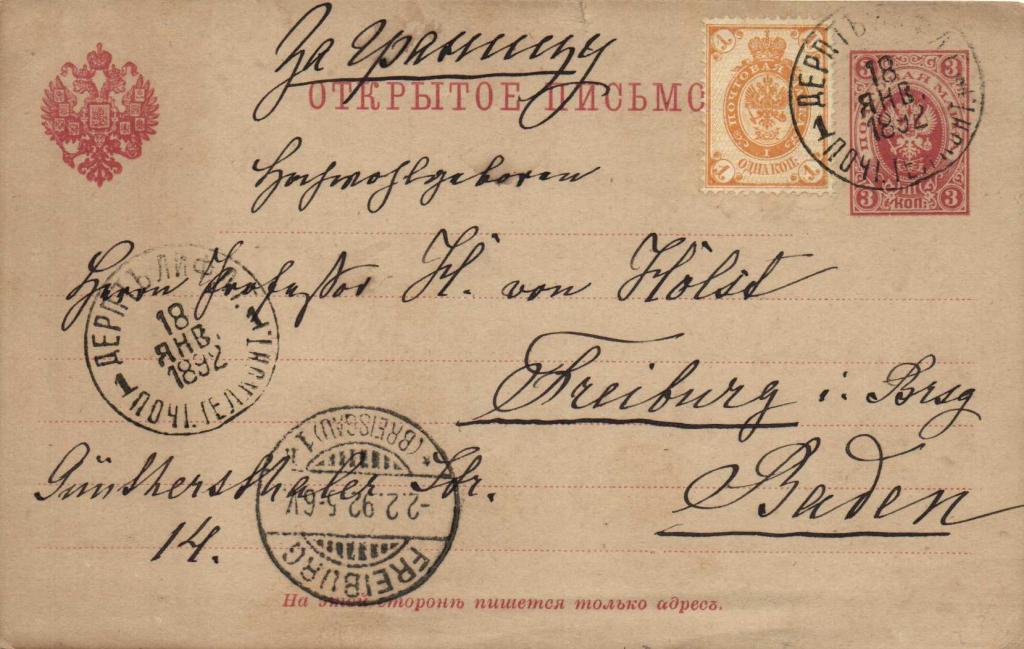 За границу
ОТКРЫТОЕ ПИСЬМО
1 1
ПОЧТОВАЯ
ОДНА КОП.
1 1
3 3
3 КОП. 3
ДЕРПТЪ
18
ЯНВ.
1892
1 ПОЧТ. ТЕЛ. КОН.
Hochwohlgeboren
Herrn Professor H. von Holst
ДЕРПТЪ ЛИФЛ.
18
ЯНВ.
1892
1 ПОЧТ. ТЕЛ. КОНТ. 1
Freiburg i. Brsg
Baden
Günthersthaler Str.
14.
FREIBURG
-2.2.92.5-6V.
* (BREISGAU) 1
На этой сторонѣ пишется только адресъ.